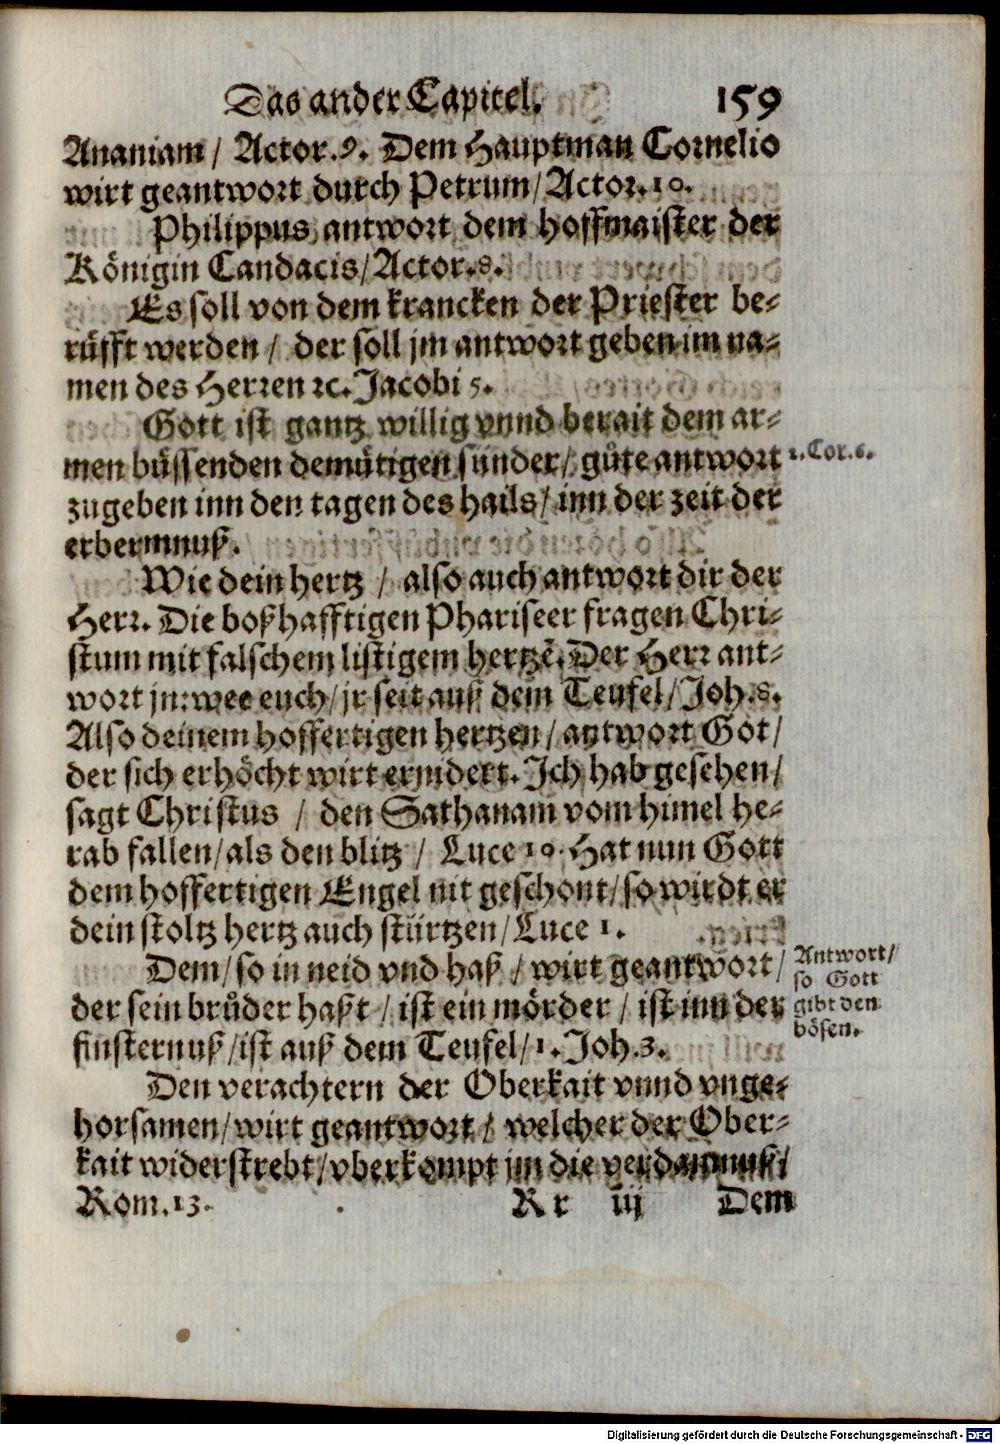 Das ander Capitel. 159
Ananiam / Actor.9. Dem Hauptman Cornelio
wirt geantwort durch Petrum/Actor.10.
Philippus antwort dem hoffmaister der
Königin Candacis/Actor.8.
Es soll von dem krancken der Priester be-
rüfft werden / der soll jm antwort geben im na-
men des Herren ꝛc. Jacobi 5.
Gott ist gantz willig vnnd berait dem ar-
men büssenden demütigen sünder/ gůte antwort
1.Cor.6.
zugeben inn den tagen des hails/ inn der zeit der
erbermnuß.
Wie dein hertz / also auch antwort dir der
Herr. Die boßhafftigen Phariseer fragen Chri-
stum mit falschem listigem hertzẽ. Der Herr ant-
wort jn: wee euch/ jr seit auß dem Teufel/Joh.8.
Also deinem hoffertigen hertzen/ antwort Got/
der sich erhöcht wirt ernidert. Ich hab gesehen/
sagt Christus / den Sathanam vom himel he-
rab fallen/als den blitz / Luce 10. Hat nun Gott
dem hoffertigen Engel nit geschont/ so wirdt er
dein stoltz hertz auch stürtzen/Luce 1.
Dem/ so in neid vnd haß / wirt geantwort/
der sein brůder haßt / ist ein mörder / ist inn der
finsternuß/ist auß dem Teufel/1. Joh.3.
Antwort/
so Gott
gibt den
bösen.
Den verachtern der Oberkait vnnd vnge-
horsamen/wirt geantwort / welcher der Ober-
kait widerstrebt/vberkompt jm die verdamnuß/
Rom.13. Rr iij Dem
Digitalisierung gefördert durch die Deutsche Forschungsgemeinschaft - DFG